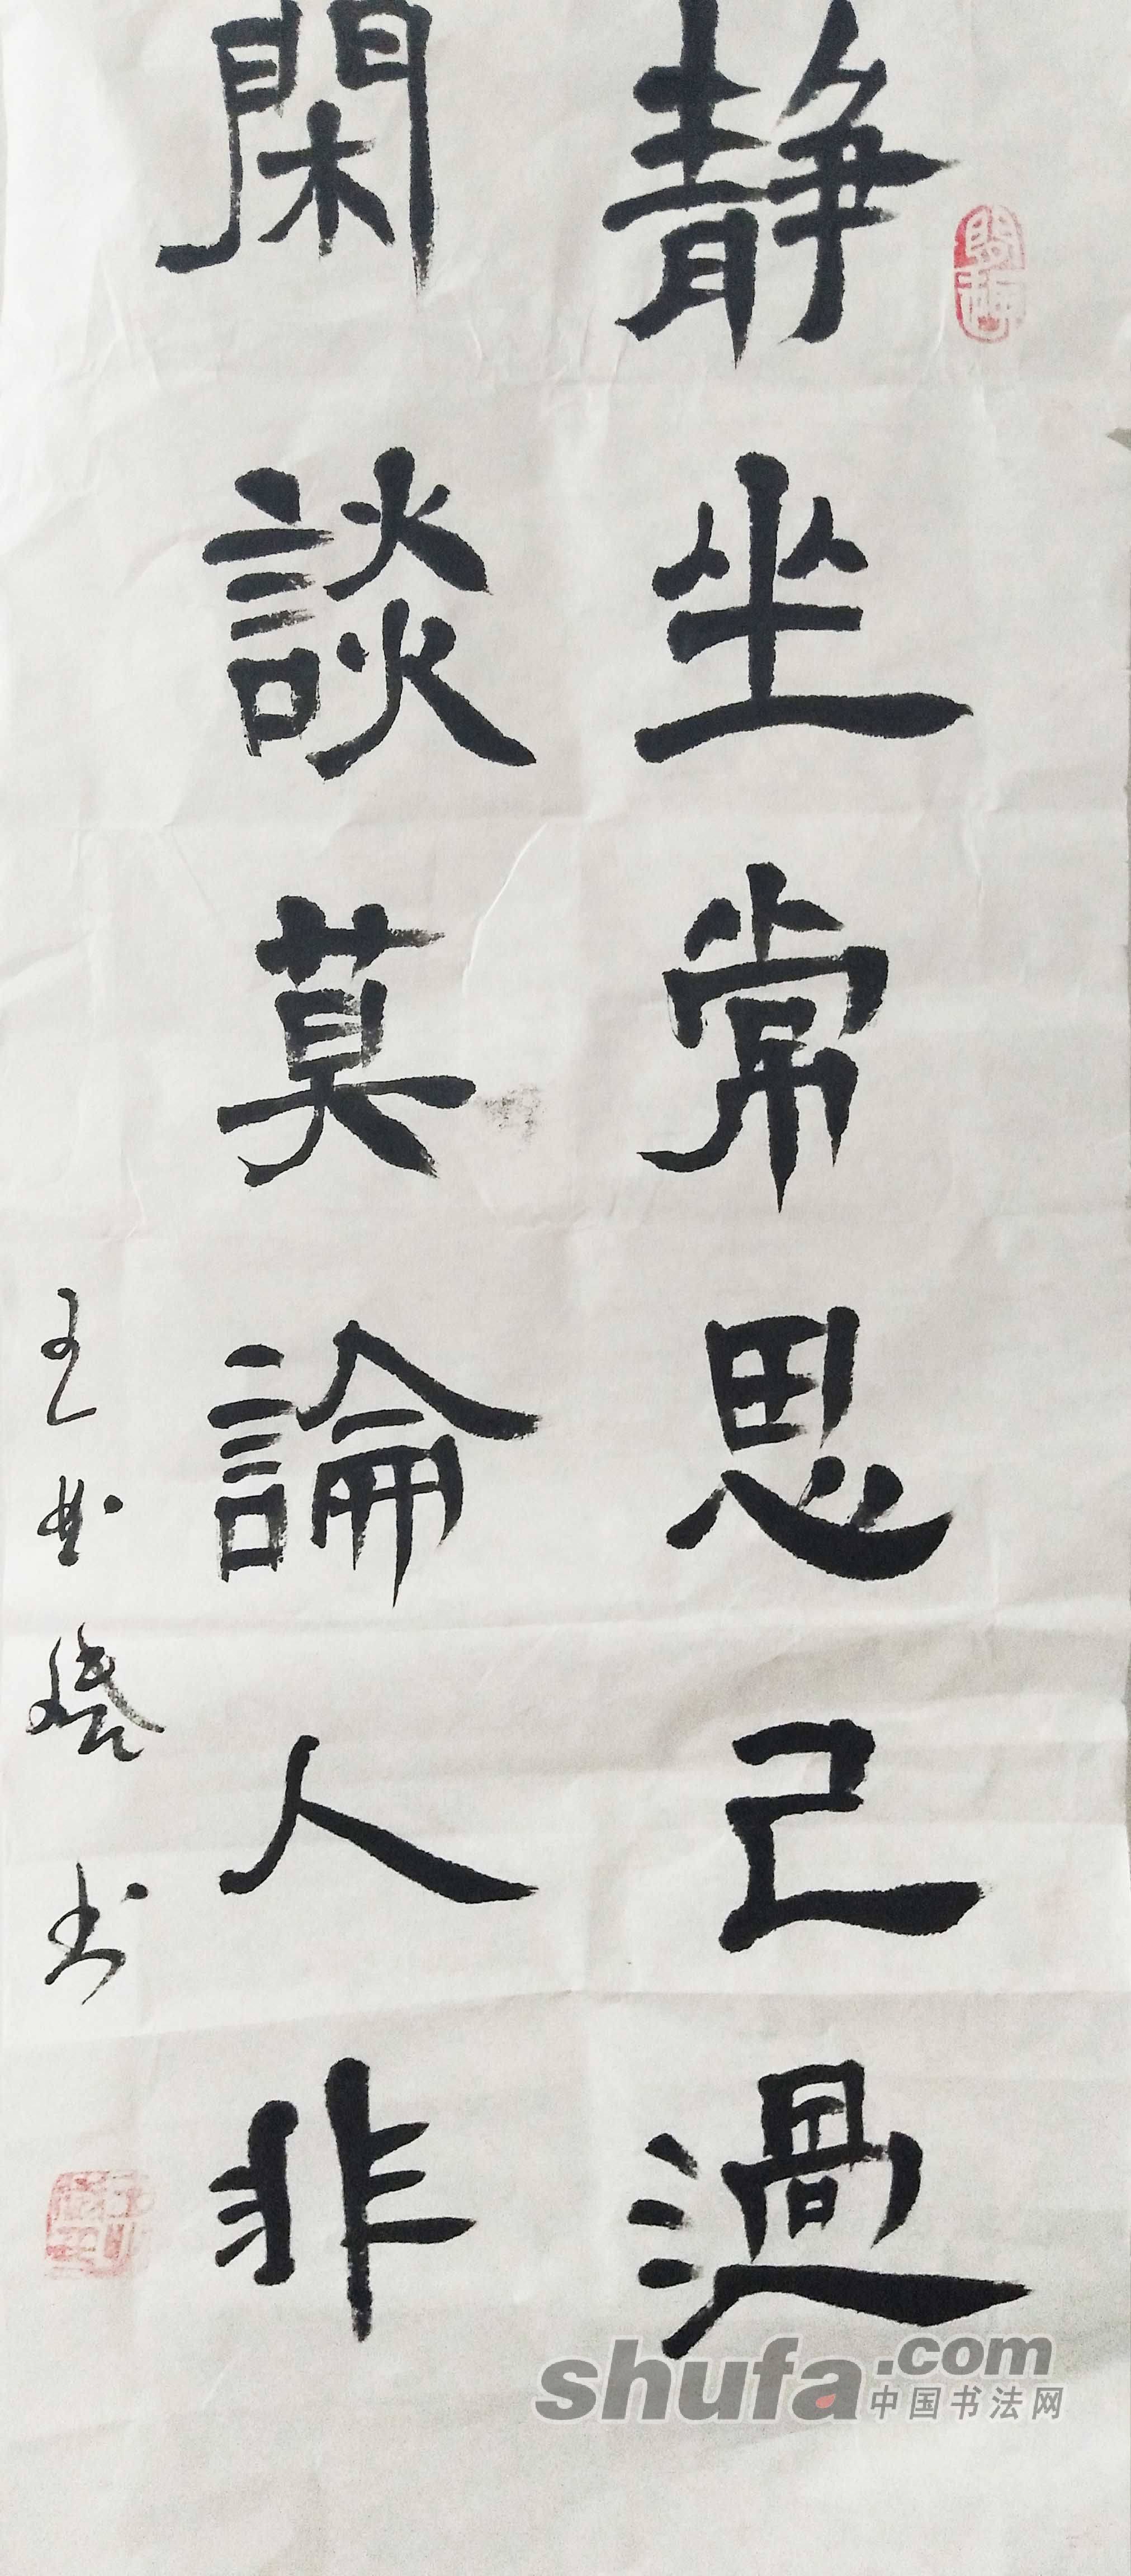 静坐常思己過
閑談莫論人非
王
书
shufa.com
中国书法网